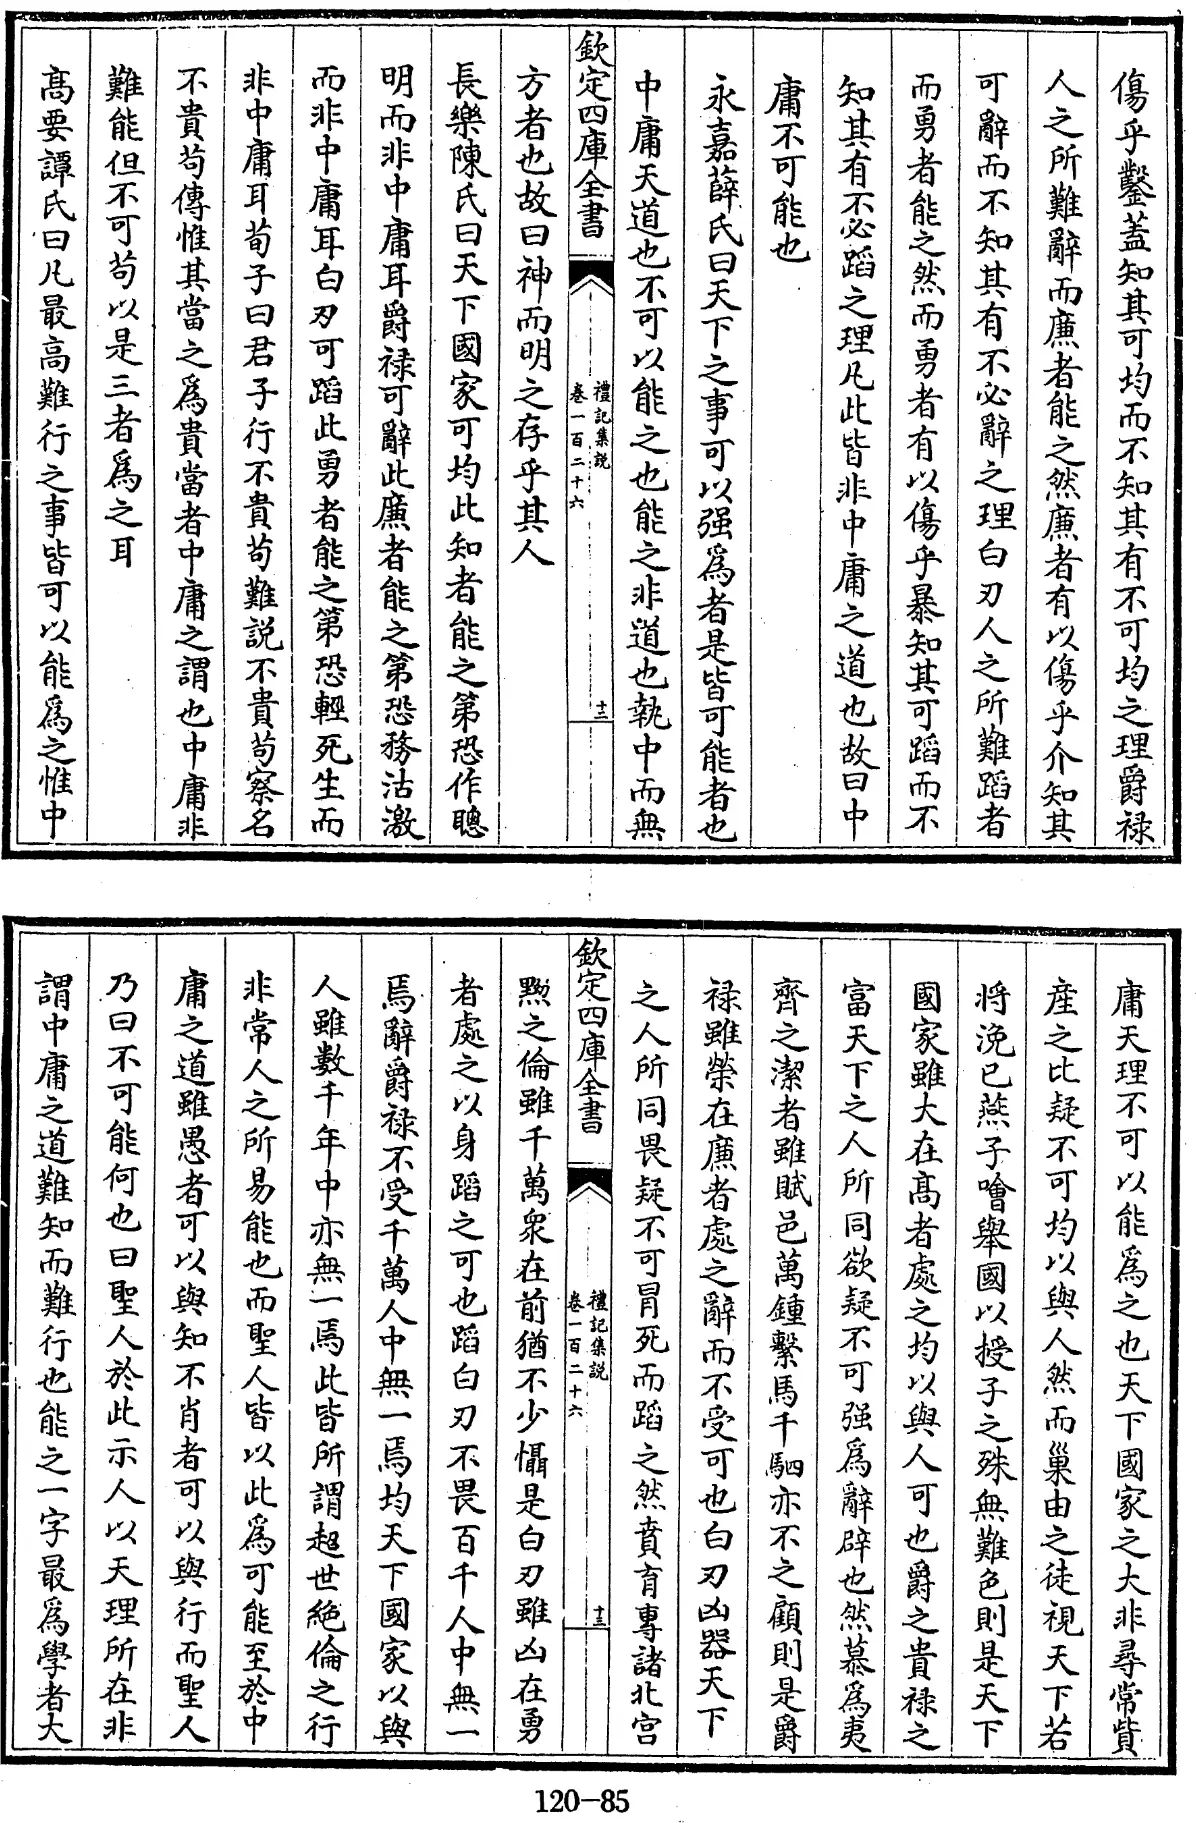 傷乎鑿蓋知其可均而不知其有不可均之理爵禄
人之所難辭而㢘者能之然㢘者有以傷乎介知其
可辭而不知其有不必辭之理白刃人之所難蹈者
而勇者能之然而勇者有以傷乎暴知其可蹈而不
知其有不必蹈之理凡此皆非中庸之道也故曰中
庸不可能也
永嘉薛氏曰天下之事可以强為者是皆可能者也
中庸天道也不可以能之也能之非道也執中而無
欽定四庫全書
禮記集説
卷一百二十六
十二
方者也故曰神而明之存乎其人
長樂陳氏曰天下國家可均此知者能之第恐作聰
明而非中庸耳爵禄可辭此㢘者能之第恐務沽激
而非中庸耳白刃可蹈此勇者能之第恐輕死生而
非中庸耳荀子曰君子行不貴苟難説不貴苟察名
不貴苟傳惟其當之為貴當者中庸之謂也中庸非
難能但不可苟以是三者為之耳
髙要譚氏曰凡最高難行之事皆可以能為之惟中
庸天理不可以能為之也天下國家之大非尋常貲
産之比疑不可均以與人然而巢由之徒視天下若
將浼已燕子噲舉國以授子之殊無難色則是天下
國家雖大在髙者處之均以與人可也爵之貴禄之
富天下之人所同欲疑不可强為辭辟也然慕為夷
齊之潔者雖賦邑萬鍾繫馬千駟亦不之顧則是爵
禄雖榮在㢘者處之辭而不受可也白刃凶器天下
之人所同畏疑不可冐死而蹈之然賁育專諸北宫
欽定四庫全書
禮記集説
卷一百二十六
十三
黝之倫雖千萬衆在前猶不少懾是白刃雖凶在勇
者處之以身蹈之可也蹈白刃不畏百千人中無一
焉辭爵禄不受千萬人中無一焉均天下國家以與
人雖數千年中亦無一焉此皆所謂超世絶倫之行
非常人之所易能也而聖人皆以此為可能至於中
庸之道雖愚者可以與知不肖者可以與行而聖人
乃曰不可能何也曰聖人於此示人以天理所在非
謂中庸之道難知而難行也能之一字最為學者大
120-85